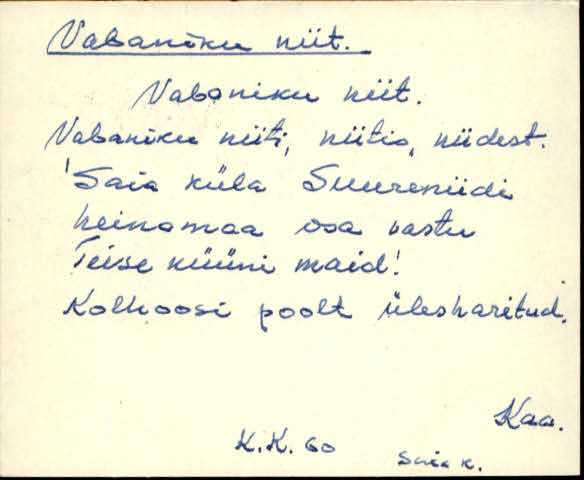 Vabaniku niit.
Vabaniku niit.
Vabaniku niiti, niitiə, niidest.
'Saia küla Suureniidi
heinamaa osa vastu
Teise küüni maid!
Kolhoosi poolt ülesharitud.
Kaa.
K.K. 60
Saia k.